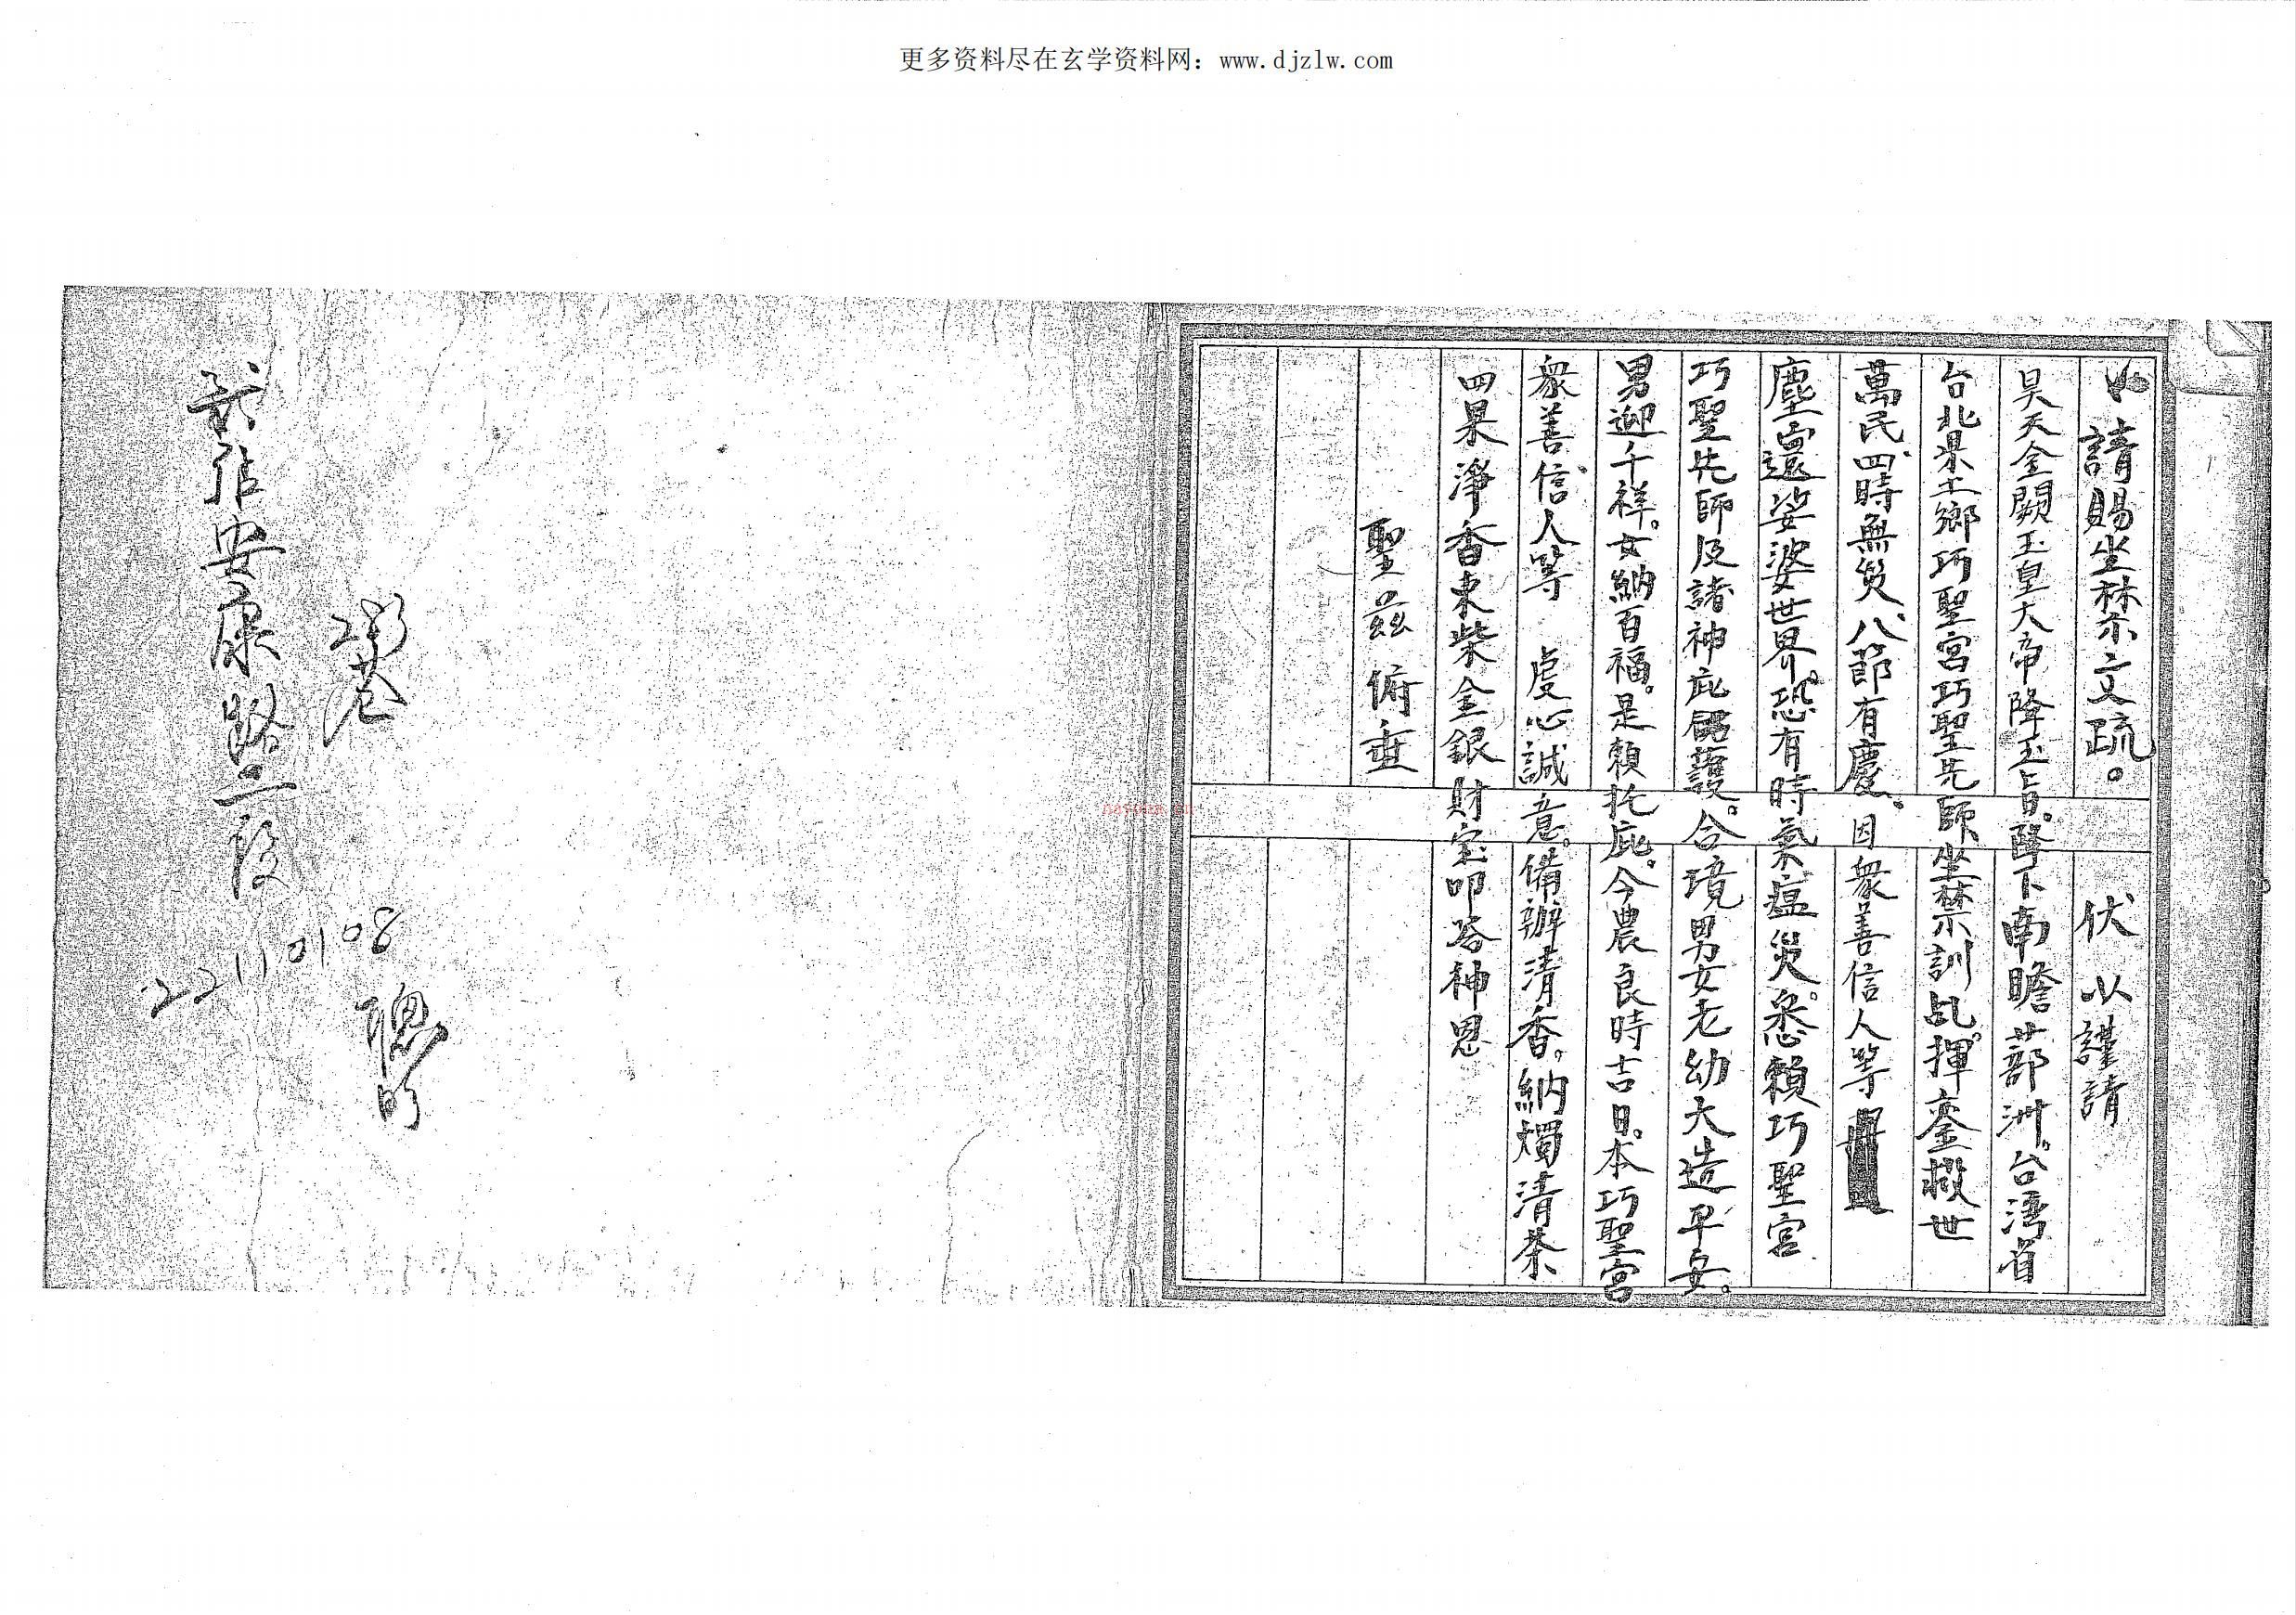 更多资料尽在玄学资料网：www.djzlw.com
請賜坐禁文疏。 伏以謹請
昊天金闕玉皇大帝降玉旨。降下南瞻蔀洲。台湾省
台北県土鄉巧聖宮巧聖先師坐禁訓乩。揮鸾救世
萬民。四時無災。八節有慶。因衆善信人等
塵寰娑婆世界。恐有時氣瘟災。悉賴巧聖宮
巧聖先師及諸神庇佑護。合境男女老幼大造平安。
男迎千祥。女納百福。是賴托庇。今農良時吉日。本巧聖宮
衆善信人等 虔心誠意。備辦清香。納燭清茶
四果淨香束柴金銀財宝叩答神恩
聖茲俯垂
安康路二段
巷
2211 0108
聰明